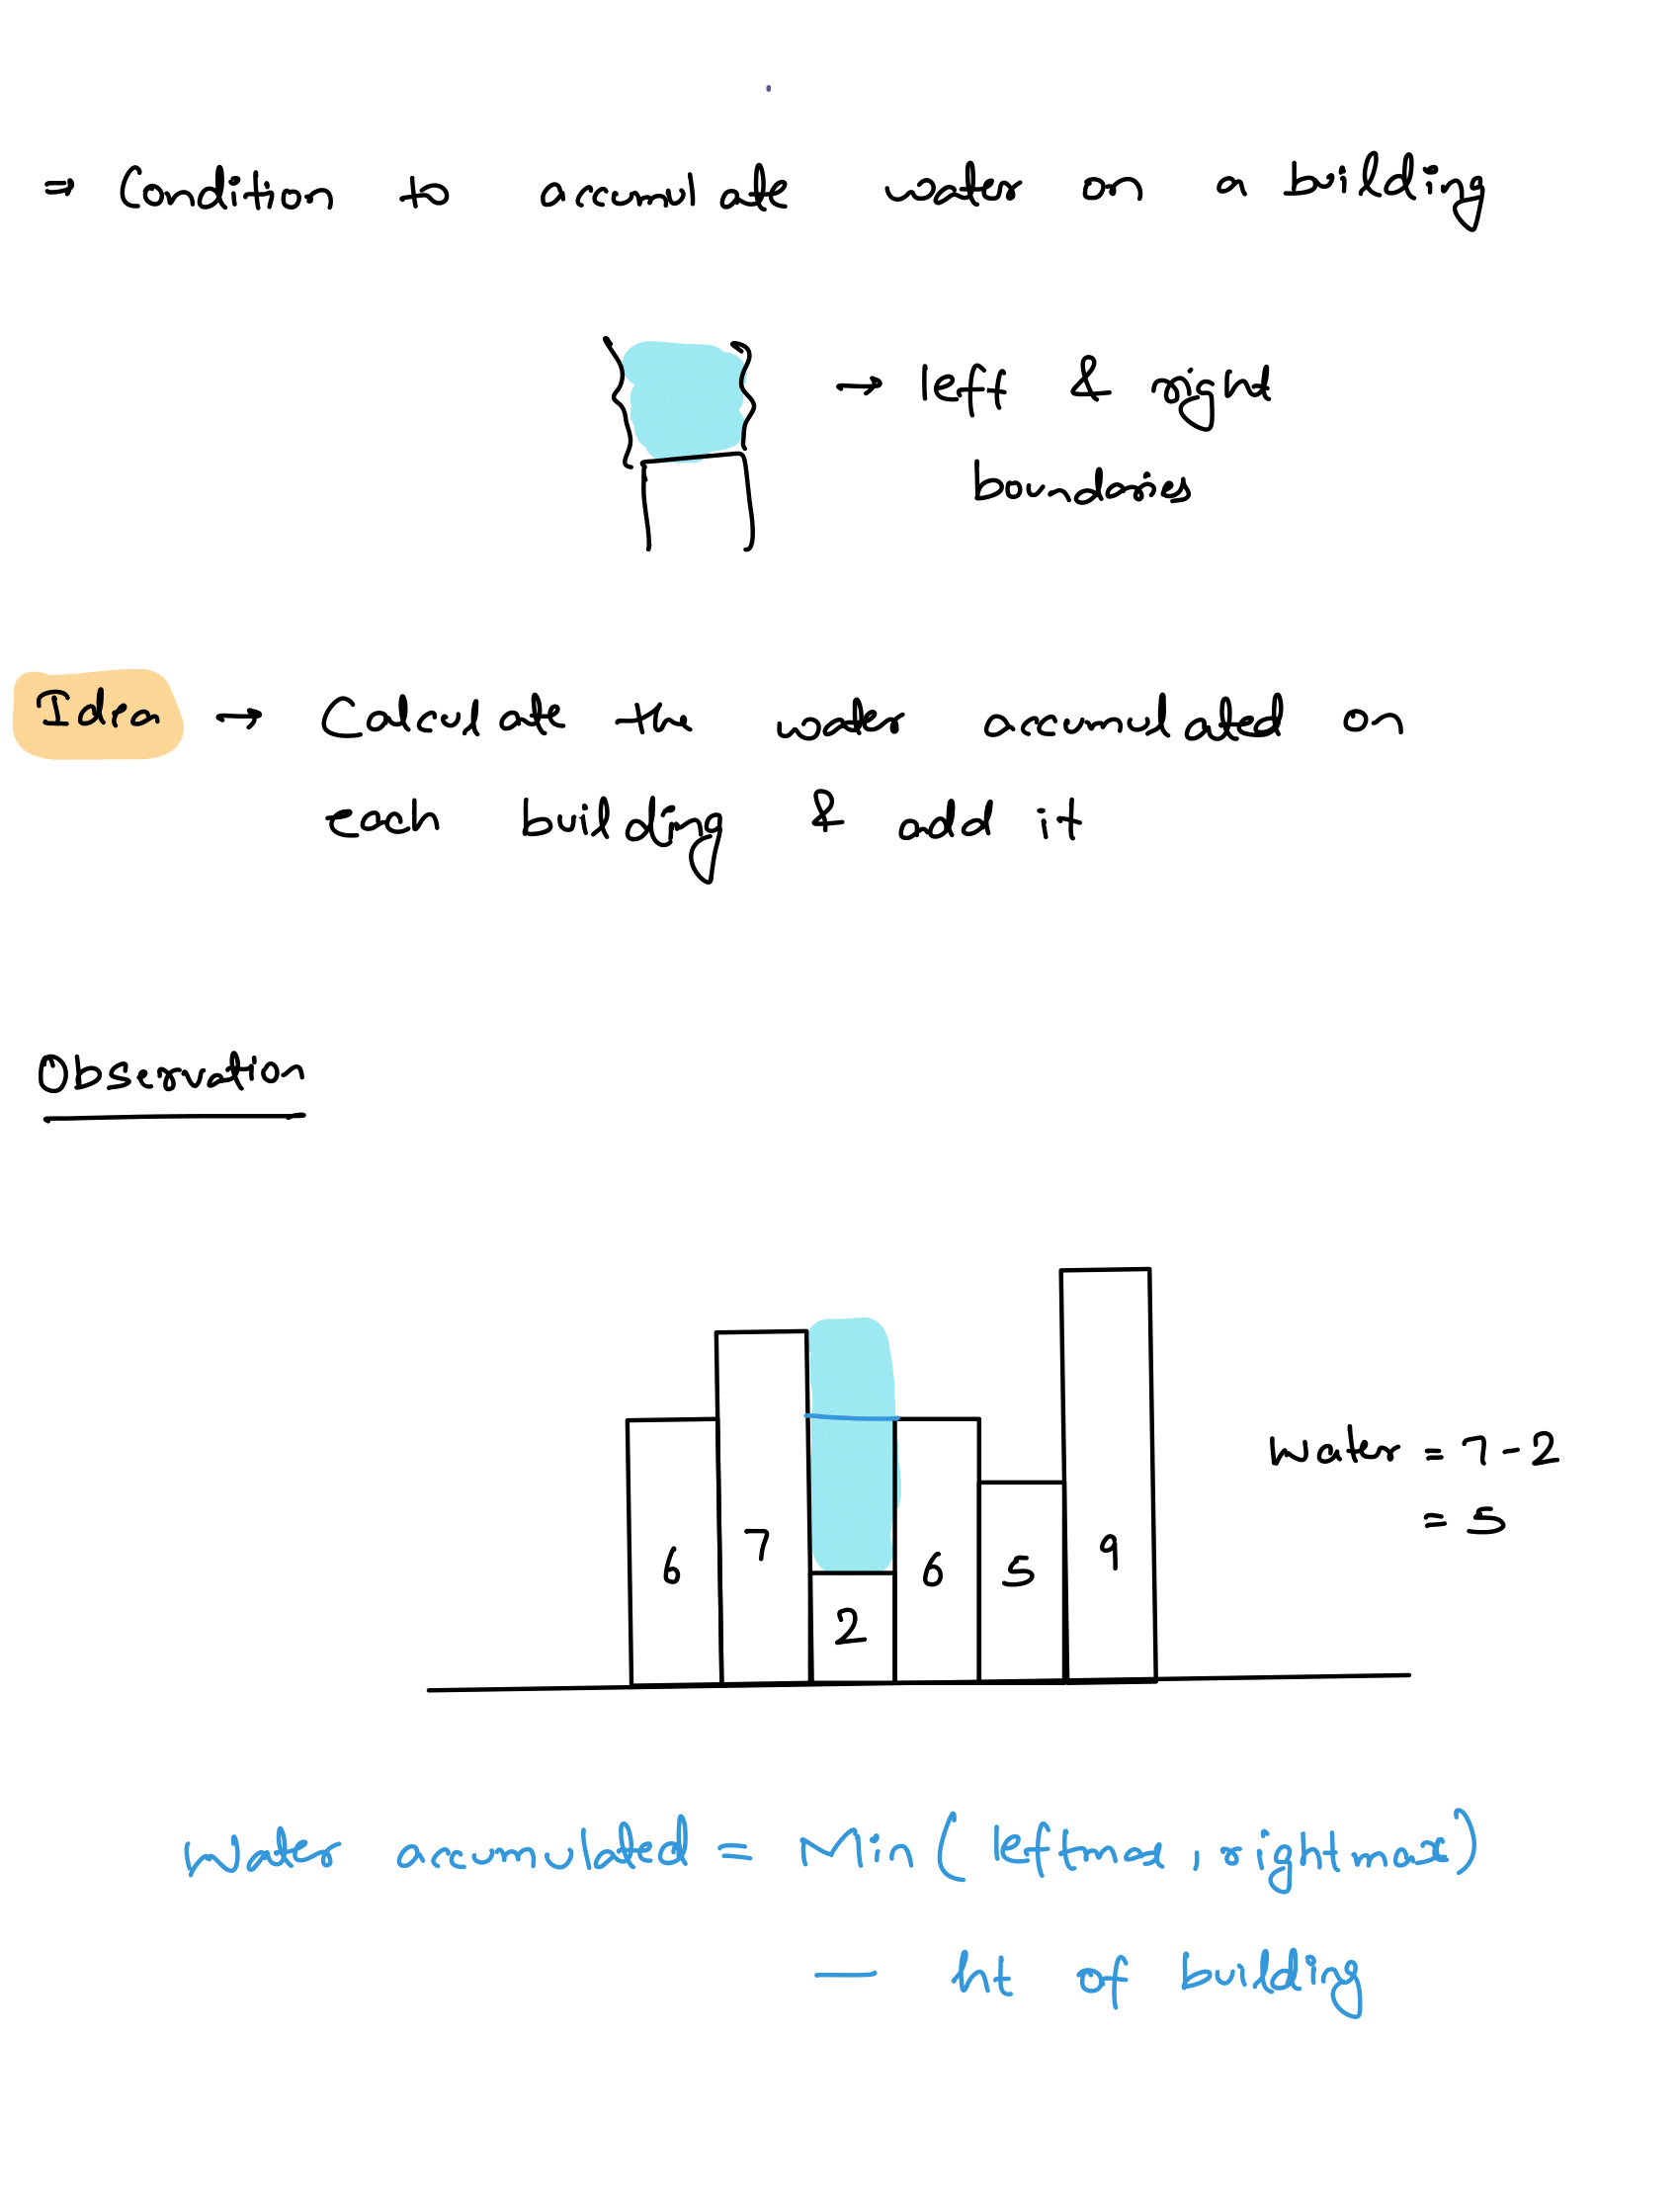 ⇒ Condition to accumulate water on a building
→ left & right
boundaries
Idea → Calculate the water accumulated on
each building & add it
Observation
6 7 2 6 5 9
Water = 7 - 2
= 5
Water accumulated = Min( leftmax, rightmax)
— ht of building